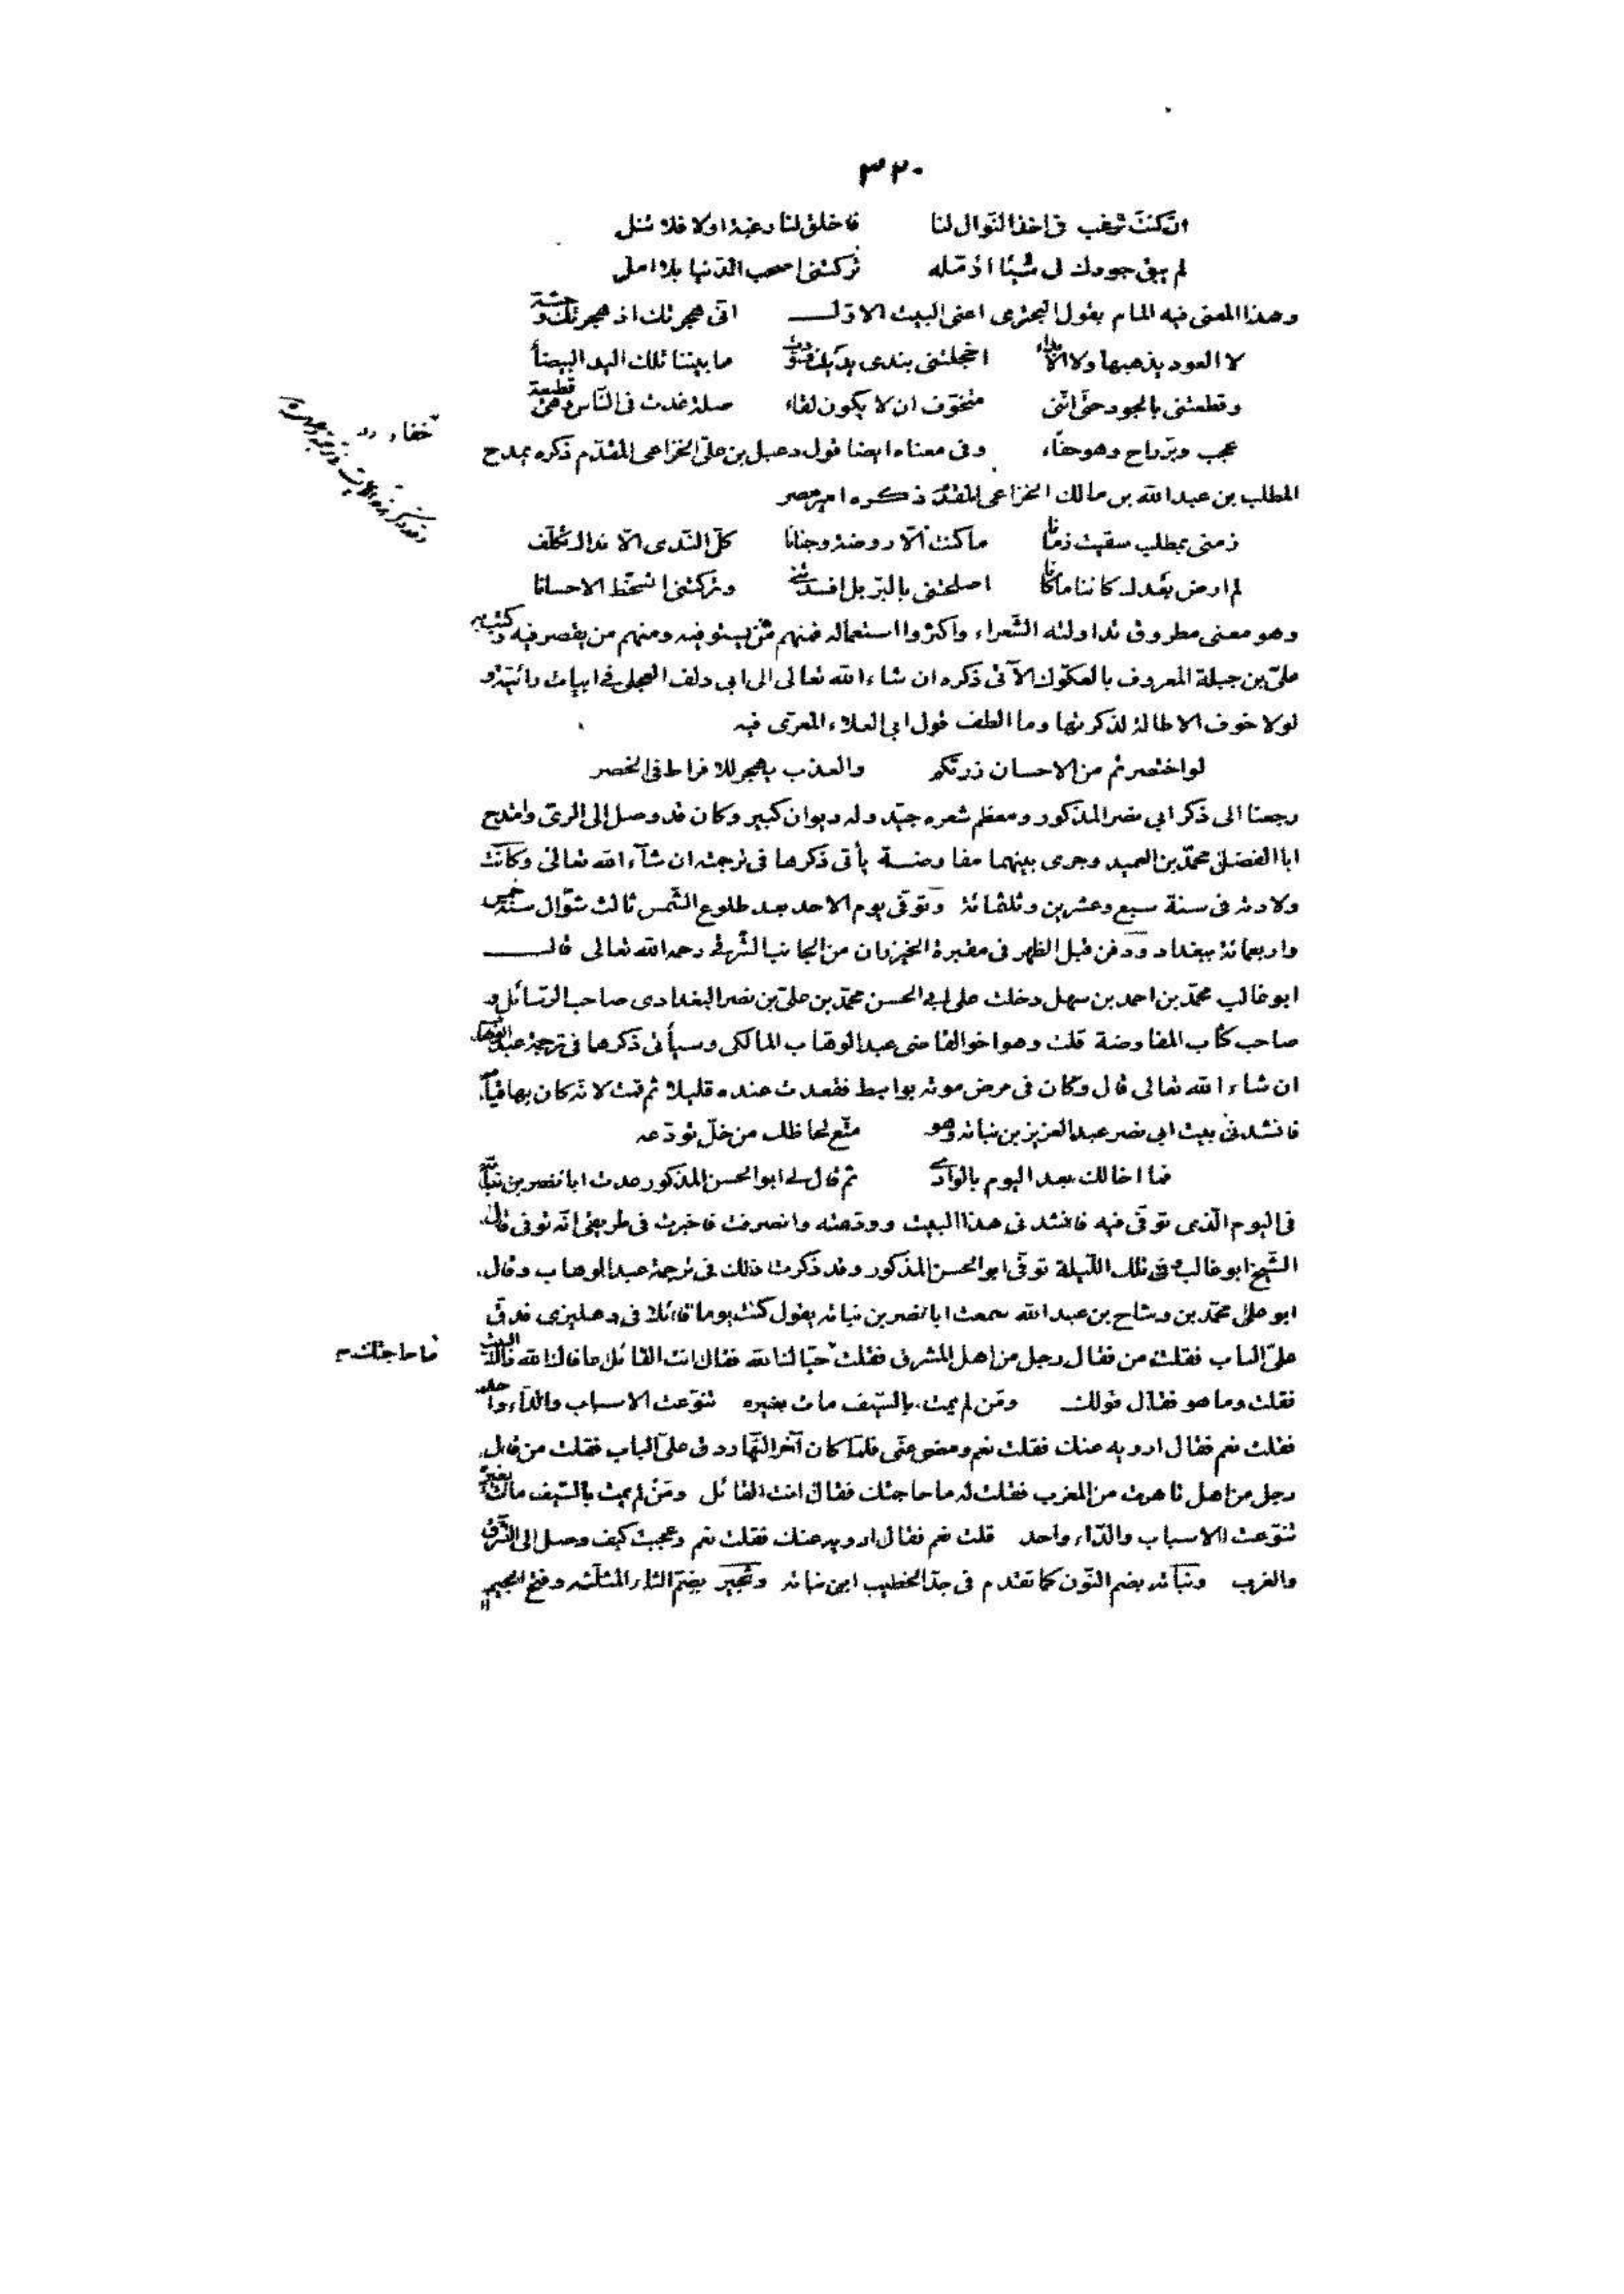 ٣٢٠
ان كنت ترغب فى اخذ النّوال لنا فاخلق لنا رغبة اولا فلا تنل
لم يبق جودك لى شيئا اؤمّله تركتنى اصحب الدّنيا بلا امل
وهذا المعنى فيه المام بقول البحترى اعنى البيت الاوّل انّى هجرتك اذ هجرتك وحشة
لا العود يذهبها ولا الابداء اخجلتنى بندى يديك فسوّدت ما بيننا تلك اليد البيضاء
وقطعتنى بالجود حتّى انّنى متخوّف ان لا يكون لقاء صلة غدت فى النّاس وهى قطيعة
عجب وبرّ راح وهو جفاء وفى معناه ايضا قول دعبل بن علىّ الخزاعى المقدّم ذكره يمدح
المطلب بن عبد الله بن مالك الخزاعى المقدّم ذكره امير مصر
زمنى بمطلب سقيت زمانا ما كنت الّا روضة وجنانا كلّ النّدى الّا نداك تكلّف
لم ارض بعدك كائنا ما كانا اصلحتنى بالبرّ بل افسدتنى وتركتنى اتسخّط الاحسانا
وهو معنى مطروق تداولته الشّعراء واكثروا استعماله فمنهم من يستوفيه ومنهم من يقصر فيه وكتب به
علىّ بن جبلة المعروف بالعكوّك الآتى ذكره ان شاء الله تعالى الى ابى دلف العجلى فى ابيات رائيّة و
لولا خوف الاطالة لذكرتها وما الطف قول ابى العلاء المعرّى فيه
لو اختصرتم من الاحسان زرتكم والعذب يهجر للافراط فى الخصر
رجعنا الى ذكر ابى نصر المذكور ومعظم شعره جيّد وله ديوان كبير وكان قد وصل الى الرىّ وامتدح
ابا الفضل محمّد بن العميد وجرى بينهما مفاوضة يأتى ذكرها فى ترجمته ان شآء الله تعالى وكانت
ولادته فى سنة سبع وعشرين وثلثمائة وتوفّى يوم الاحد بعد طلوع الشّمس ثالث شوّال سنة خمس
واربعمائة ببغداد ودفن قبل الظهر فى مقبرة الخيزران من الجانب الشّرقى رحمه الله تعالى قال
ابو غالب محمّد بن احمد بن سهل دخلت على ابى الحسن محمّد بن علىّ بن نصر البغدادى صاحب الرّسائل و
صاحب كتاب المفاوضة قلت وهو اخو القاضى عبد الوهّاب المالكى وسيأتى ذكرها فى ترجمة عبد الوهاب
ان شاء الله تعالى قال وكان فى مرض موته بواسط فقعدت عنده قليلا ثم قمت لانه كان بها
فانشدنى بيت ابى نصر عبد العزيز بن نباته وهو متّع لحاظك من خلّ تودّعه
فما اخالك بعد اليوم بالوادى ثم قال لى ابو الحسن المذكور عدت ابا نصر بن نباتة
فى اليوم الّذى توفّى فيه فانشدنى هذا البيت وودّعته وانصرفت فاخبرت فى طريقى انّه توفى قال
الشّيخ ابو غالب وفى تلك اللّيلة توفّى ابو الحسن المذكور وقد ذكرت ذلك فى ترجمة عبد الوهاب وقال
ابو علىّ محمّد بن وشاح بن عبد الله سمعت ابا نصر بن نباته يقول كنت يوما قائلا فى دهليزى فدقّ
علىّ الباب فقلت من فقال رجل من اهل المشرق فقلت فقال انت القائل
فما حاجتك
فقلت وما هو فقال قولك ومن لم يمت بالسّيف مات بغيره تنوّعت الاسباب والدّاء واحد
فقلت نعم فقال ارويه عنك فقلت نعم ومضى عنّى فلمّا كان آخر النّهار دق علىّ الباب فقلت من قال
رجل من اهل تاهرت من المغرب فقلت له ما حاجتك فقال انت القائل ومن لم يمت بالسّيف مات بغيره
تنوّعت الاسباب والدّاء واحد قلت نعم فقال ارويه عنك فقلت نعم وعجبت كيف وصل الى الشّرق
والغرب ونباته بضم النّون كما تقدم فى جدّ الخطيب ابن نباته وثجير بضمّ الثاء المثلّثه وفتح الجيم